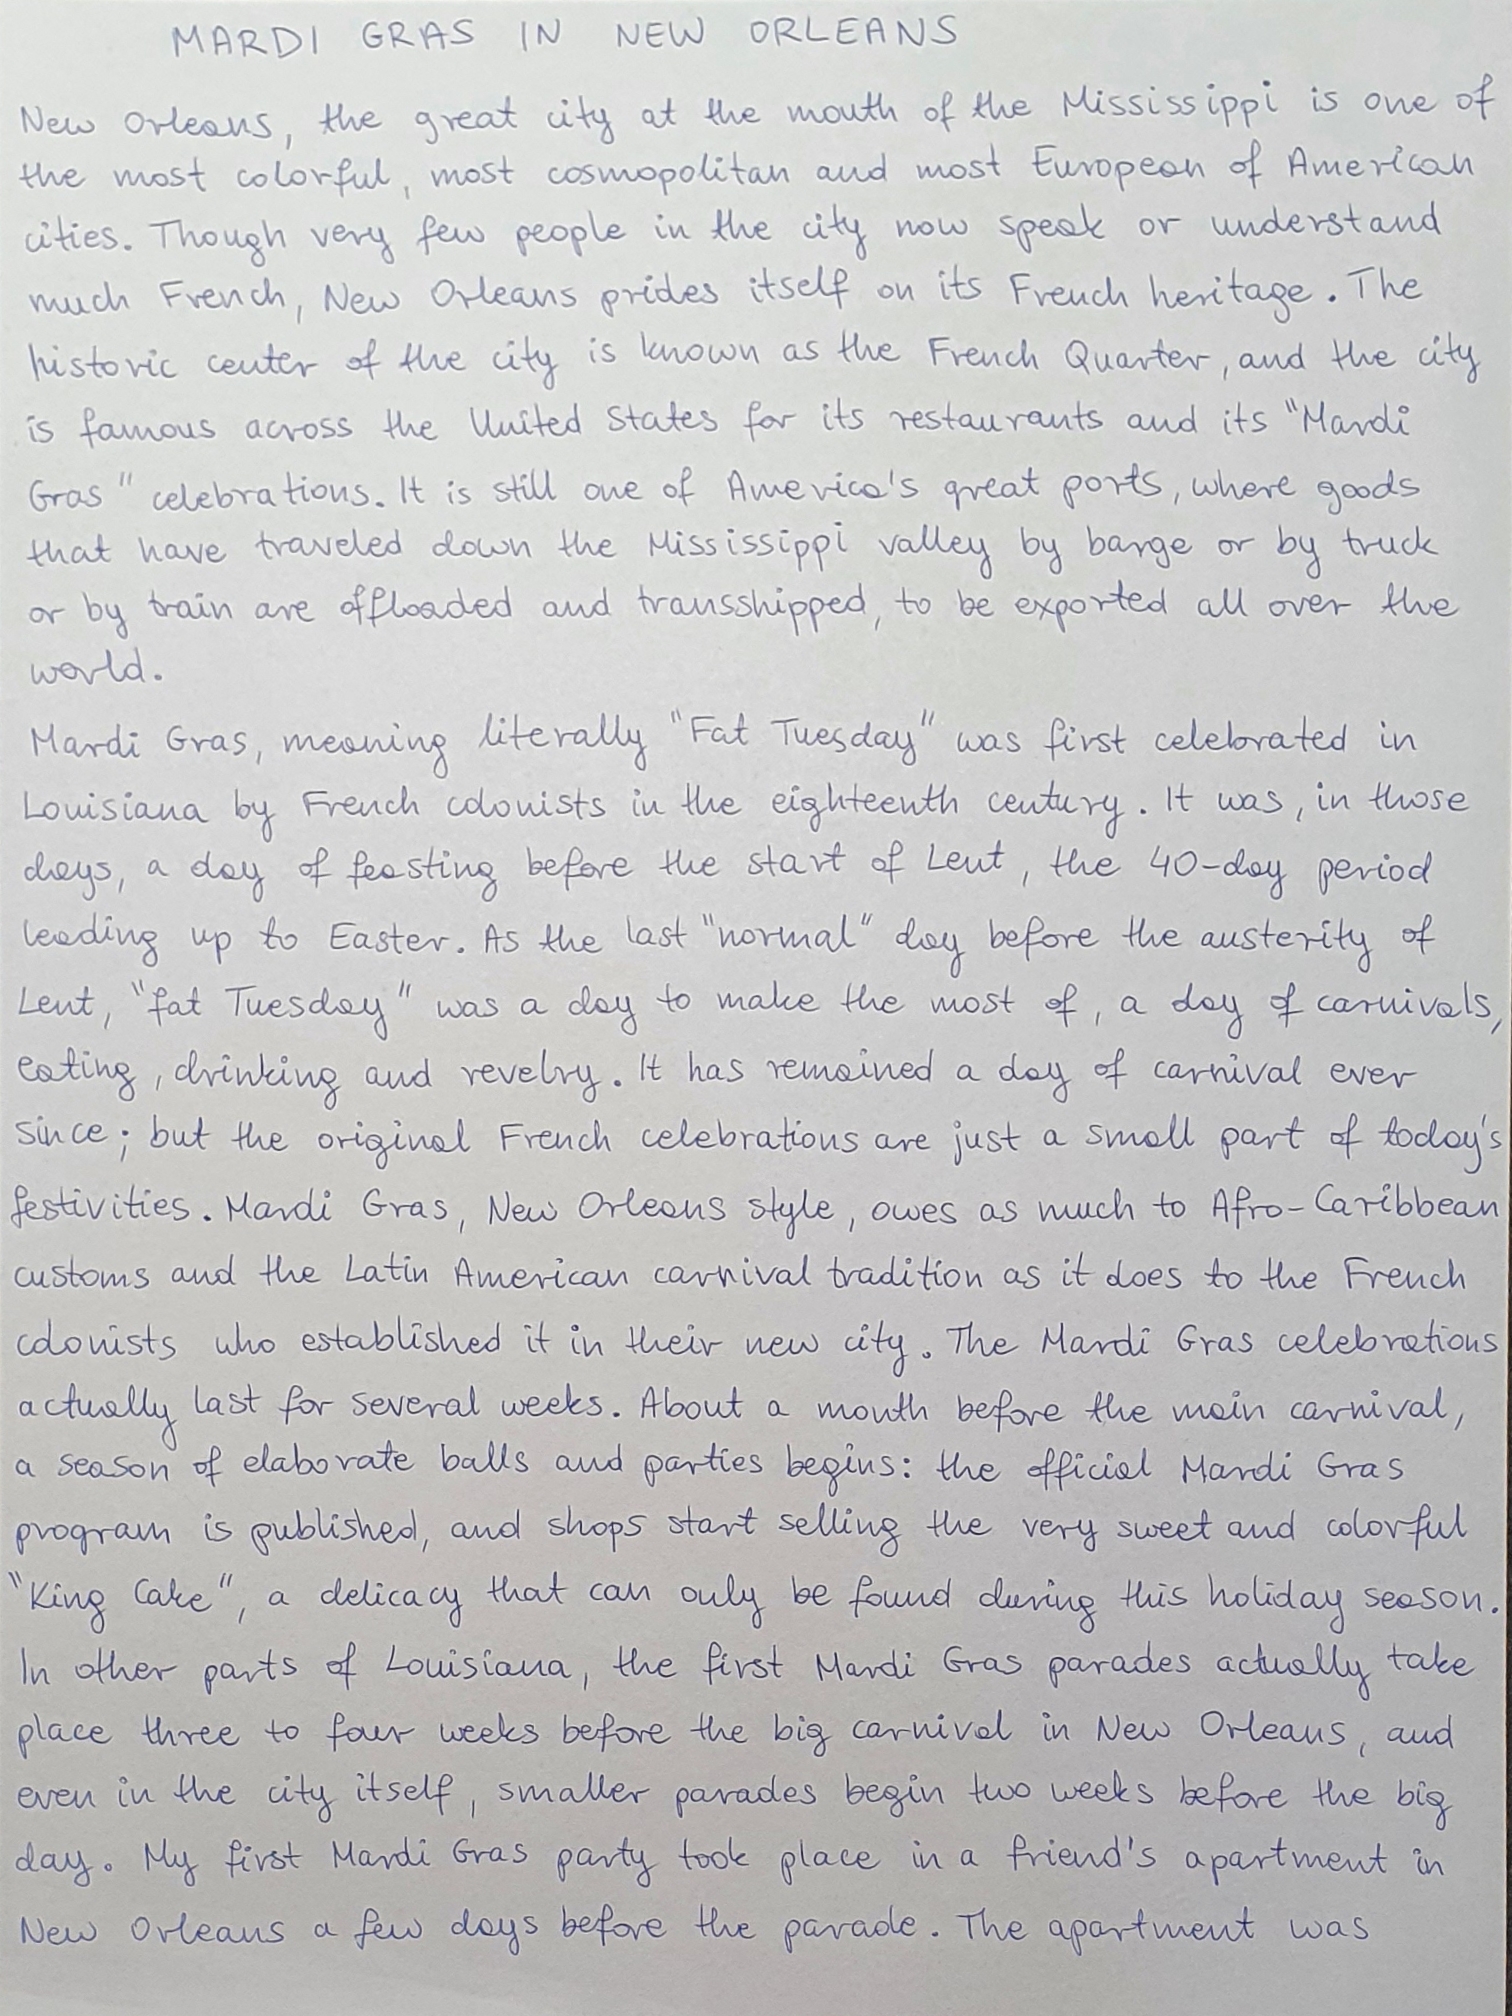 MARDI GRAS IN NEW ORLEANS
New Orleans, the great city at the mouth of the Mississippi is one of
the most colorful, most cosmopolitan and most European of American
cities. Though very few people in the city now speak or understand
much French, New Orleans prides itself on its French heritage. The
historic center of the city is known as the French Quarter, and the city
is famous across the United States for its restaurants and its "Mardi
Gras" celebrations. It is still one of America's great ports, where goods
that have traveled down the Mississippi valley by barge or by truck
or by train are offloaded and transshipped, to be exported all over the
world.
Mardi Gras, meaning literally "Fat Tuesday" was first celebrated in
Louisiana by French colonists in the eighteenth century. It was, in those
days, a day of feasting before the start of Lent, the 40-day period
leading up to Easter. As the last "normal" day before the austerity of
Lent, "fat Tuesday" was a day to make the most of, a day of carnivals,
eating, drinking and revelry. It has remained a day of carnival ever
since; but the original French celebrations are just a small part of today's
festivities. Mardi Gras, New Orleans style, owes as much to Afro-Caribbean
customs and the Latin American carnival tradition as it does to the French
colonists who established it in their new city. The Mardi Gras celebrations
actually last for several weeks. About a month before the main carnival,
a season of elaborate balls and parties begins: the official Mardi Gras
program is published, and shops start selling the very sweet and colorful
"King Cake", a delicacy that can only be found during this holiday season.
In other parts of Louisiana, the first Mardi Gras parades actually take
place three to four weeks before the big carnival in New Orleans, and
even in the city itself, smaller parades begin two weeks before the big
day. My first Mardi Gras party took place in a friend's apartment in
New Orleans a few days before the parade. The apartment was